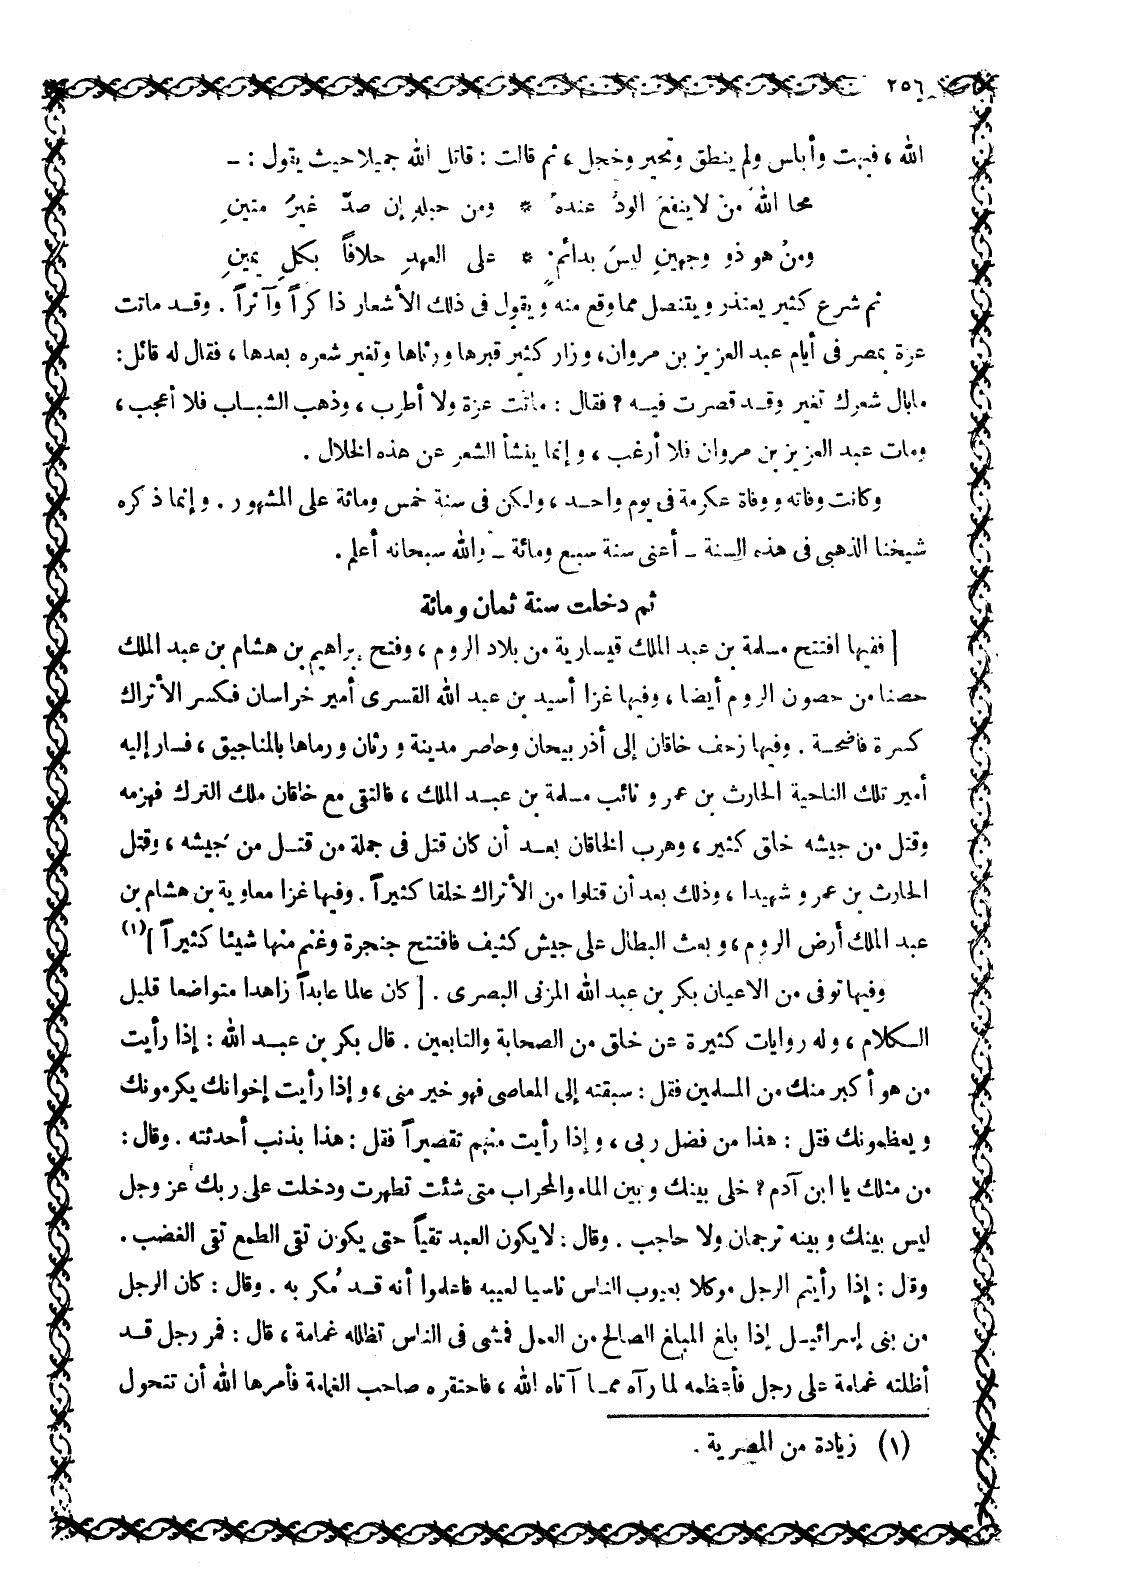 ٢٥٦
الله ، فبهت وأبلس ولم ينطق وتحير وخجل ، ثم قالت : قاتل الله جميلا حيث يقول : ـ
محا اللهُ منْ لا ينفعَ الودُّ عندهُ * ومن حبلهِ إن صدّ غيرُ متينِ
ومنْ هو ذو وجهينِ ليسَ بدائمٍ * على العهدِ حلافاً بكلِ يمينِ
ثم شرع كثير يعتذر ويتنصل مما وقع منه ويقول فى ذلك الأشعار ذا كراً وآثراً . وقد ماتت
عزة بمصر فى أيام عبد العزيز بن مروان، وزار كثير قبرها ورثاها وتغير شعره بعدها ، فقال له قائل :
ما بال شعرك تغير وقد قصرت فيه ؟ فقال : ماتت عزة ولا أطرب ، وذهب الشباب فلا أعجب ،
ومات عبد العزيز بن مروان فلا أرغب ، وإنما ينشأ الشعر عن هذه الخلال .
وكانت وفاته ووفاة عكرمة فى يوم واحد ، ولكن فى سنة خمس ومائة على المشهور . وإنما ذكره
شيخنا الذهبى فى هذه السنة ـ أعنى سنة سبع ومائة ـ والله سبحانه أعلم .
ثم دخلت سنة ثمان ومائة
[ ففيها افتتح مسلمة بن عبد الملك قيسارية من بلاد الروم ، وفتح إبراهيم بن هشام بن عبد الملك
حصنا من حصون الروم أيضا ، وفيها غزا أسيد بن عبد الله القسرى أمير خراسان فكسر الأتراك
كسرة فاضحة . وفيها زحف خاقان إلى أذر بيحان وحاصر مدينة ورثان ورماها بالمناجيق ، فسار إليه
أمير تلك الناحية الحارث بن عمرو نائب مسلمة بن عبد الملك ، فالتقى مع خاقان ملك الترك فهزمه
وقتل من جيشه خلق كثير ، وهرب الخاقان بعد أن كان قتل فى جملة من قتل من جيشه ، وقتل
الحارث بن عمرو شهيدا ، وذلك بعد أن قتلوا من الأتراك خلقا كثيراً . وفيها غزا معاوية بن هشام بن
عبد الملك أرض الروم ، وبعث البطال على جيش كثيف فافتتح جنجرة وغنم منها شيئا كثيراً ](١)
وفيها توفى من الاعيان بكر بن عبد الله المزنى البصرى . [ كان عالما عابداً زاهدا متواضعا قليل
الكلام ، وله روايات كثيرة عن خلق من الصحابة والتابعين . قال بكر بن عبد الله : إذا رأيت
من هو أكبر منك من المسلمين فقل : سبقته إلى المعاصى فهو خير منى ، وإذا رأيت إخوانك يكرمونك
ويعظمونك فقل : هذا من فضل ربى ، وإذا رأيت منهم تقصيراً فقل : هذا بذنب أحدثته . وقال :
من مثلك يا ابن آدم ؟ خلى بينك وبين الماء والمحراب متى شئت تطهرت ودخلت على ربك عز وجل
ليس بينك وبينه ترجمان ولا حاجب . وقال : لا يكون العبد تقياً حتى يكون تقى الطمع تقى الغضب .
وقال : إذا رأيتم الرجل موكلا بعيوب الناس ناسيا لعيبه فاعلموا أنه قد مُكر به . وقال : كان الرجل
من بنى إسرائيل إذا بلغ المبلغ الصالح من العمل فمشى فى الناس تظلله غمامة ، قال : فمر رجل قد
أظلته غمامة على رجل فأعظمه لما رآه مما آتاه الله ، فاحتقره صاحب الغمامة فأمرها الله أن تتحول
(١) زيادة من المصرية .